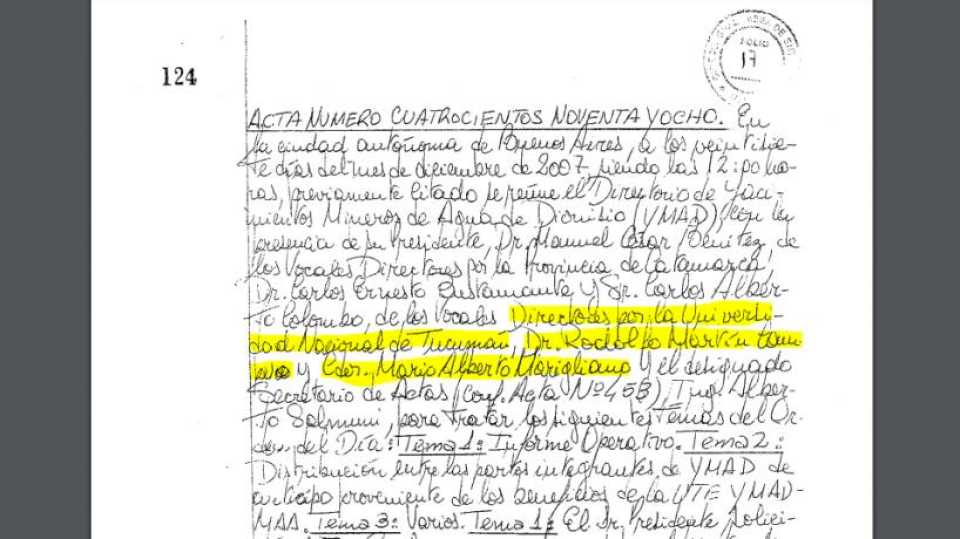 124
FOLIO
17
ACTA NUMERO CUATROCIENTOS NOVENTA Y OCHO. En
la ciudad autónoma de Buenos Aires, a los veintisie-
te días del mes de diciembre de 2007, siendo las 12:00 ho-
ras, previamente citado se reúne el Directorio de Yaci-
mientos Mineros de Agua de Dionisio (YMAD), con la
presencia de su Presidente, Dr. Manuel Benítez, de
los Vocales Directores por la Provincia de Catamarca,
Dr. Carlos Ernesto Bustamante y Sr. Carlos Alber-
to Colombo, de los Vocales Directores por la Universi-
dad Nacional de Tucumán, Dr. Rodolfo Martín
y Cdor. Mario Alberto Marigliano y el designado
Secretario de Actas (Conf. Acta Nº 453), Ing. Alber-
to Salmuni, para tratar los siguientes Temas del Or-
den del Día: Tema 1: Informe Operativo. Tema 2:
Distribución entre las partes integrantes de YMAD de
anticipo proveniente de los beneficios de la UTE YMAD-
MAA. Tema 3: Varios. Tema 1: El Sr. Presidente solici-